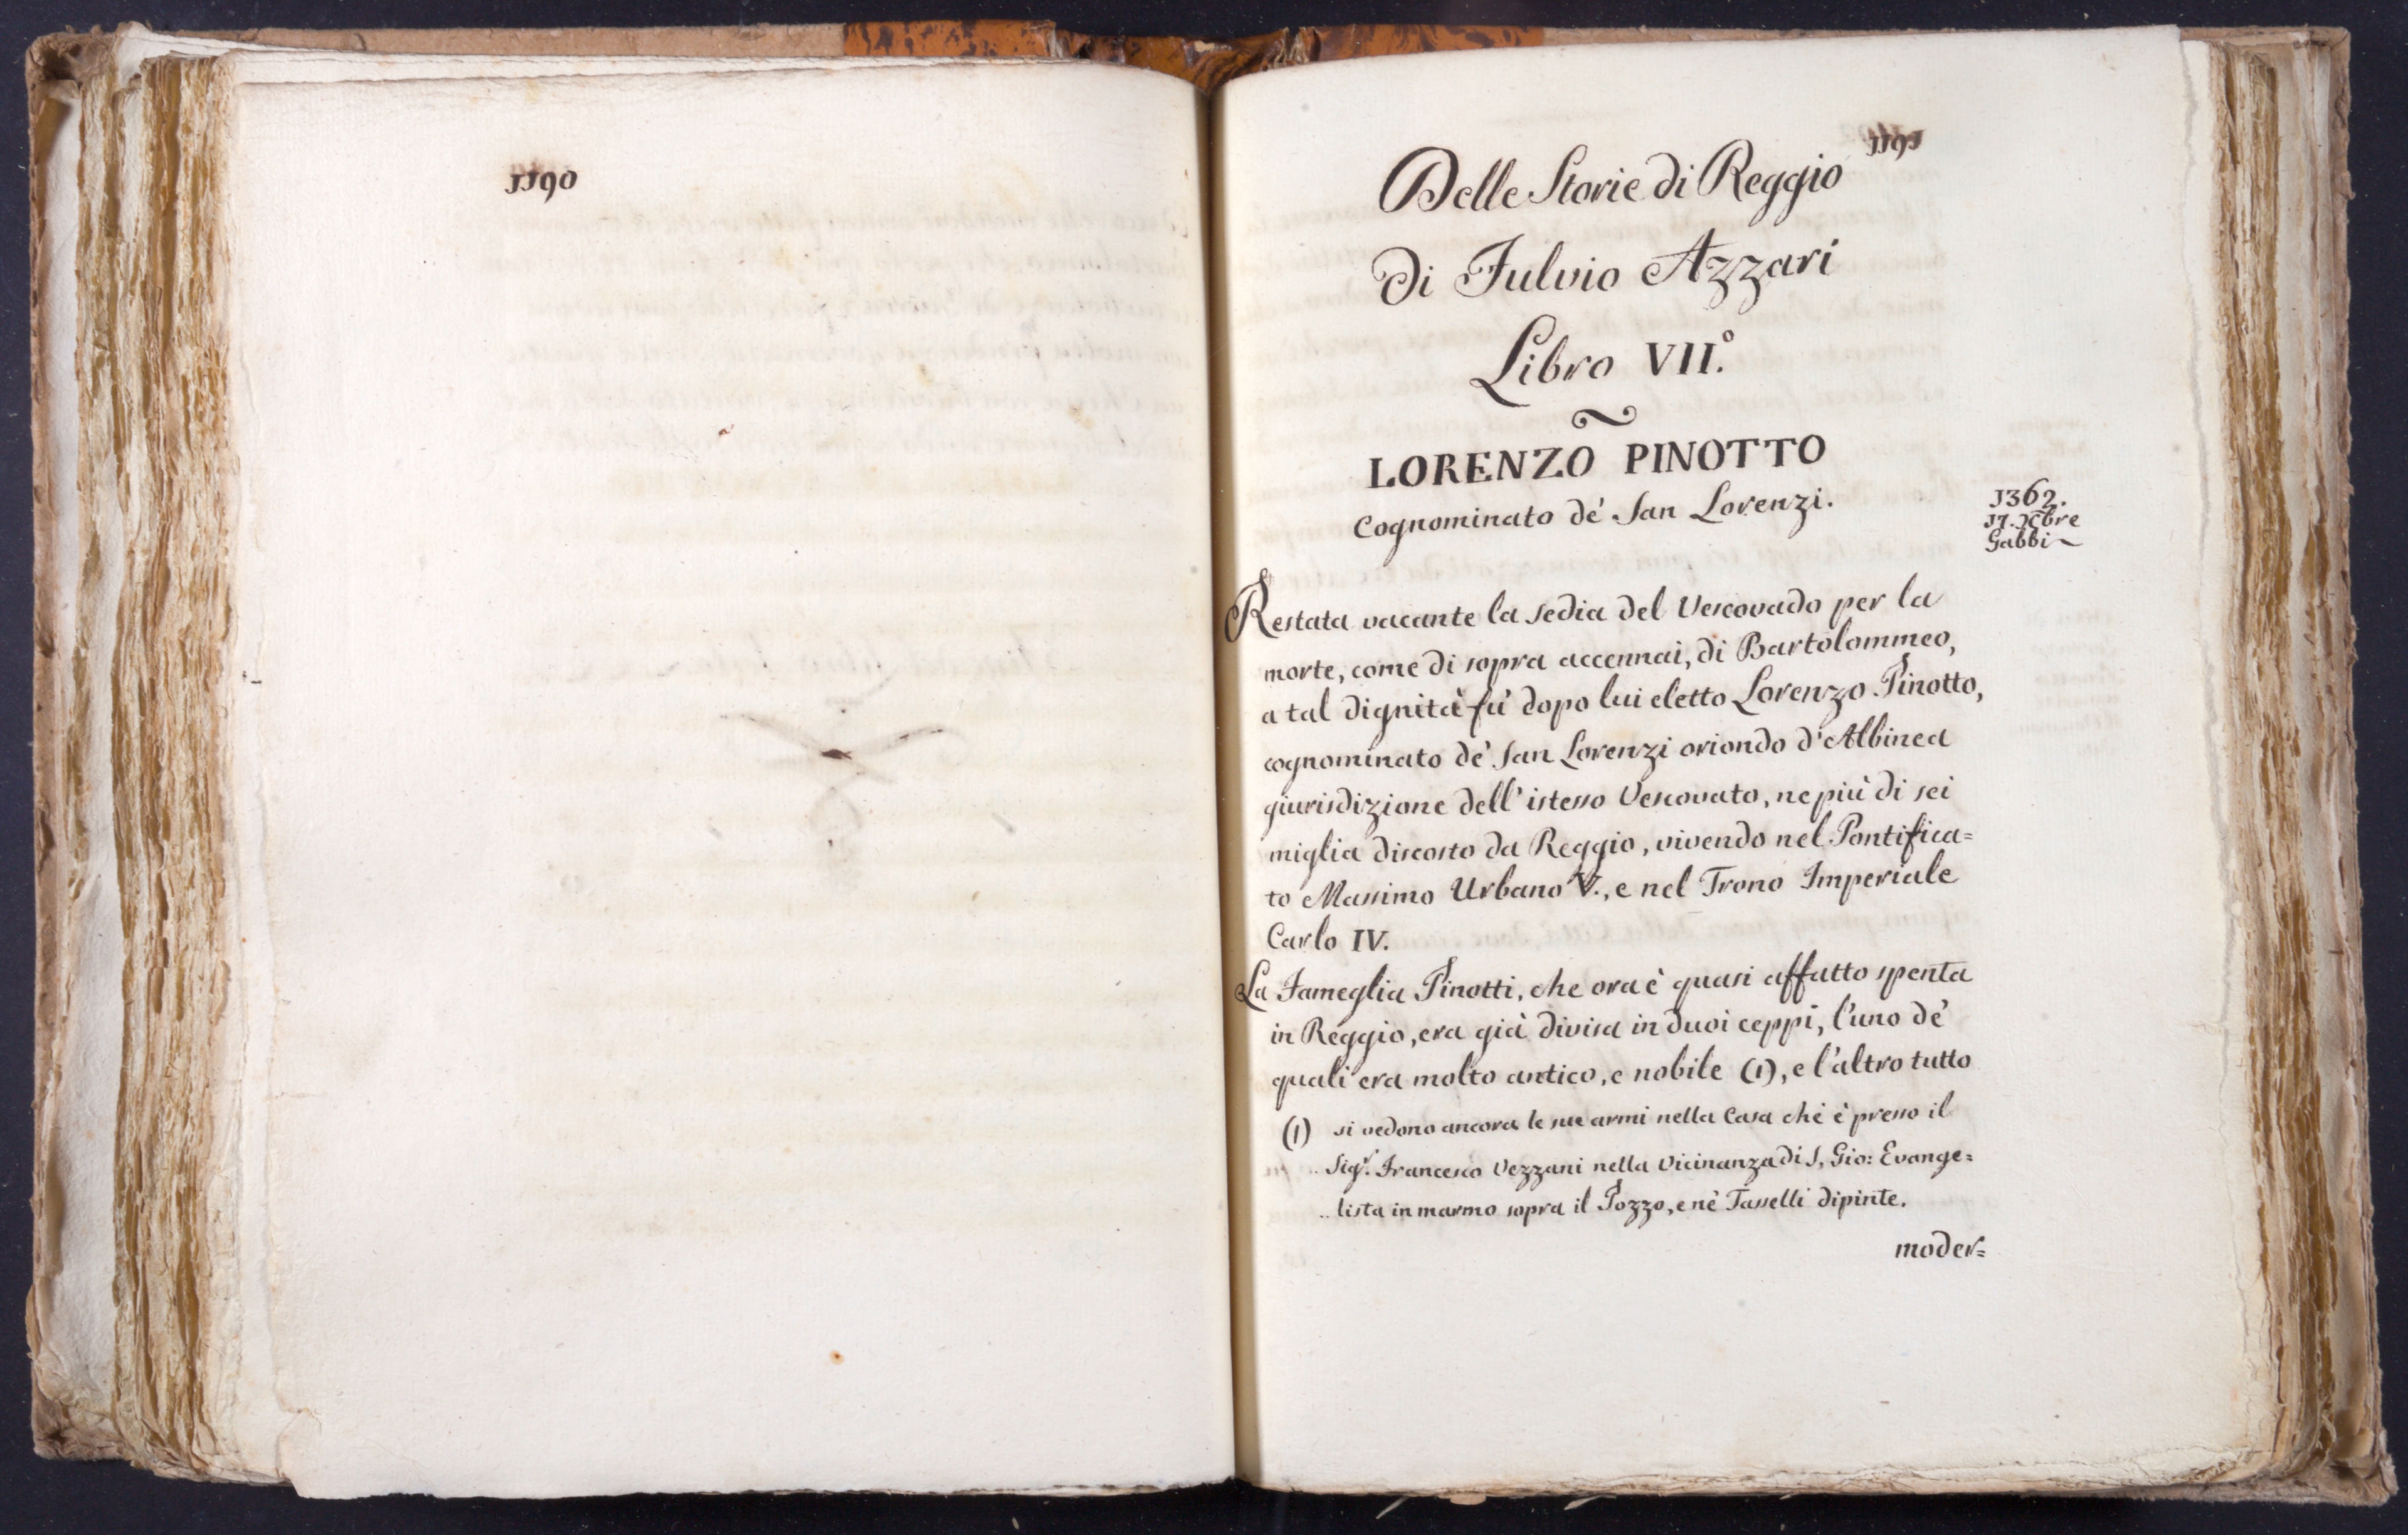 1190
1191
Delle Storie di Reggio
di Fulvio Azzari
Libro VII.º
LORENZO PINOTTO
Cognominato de' San Lorenzi.
1362.
17. Xbre
Gabbi
Restata vacante la sedia del Vescovado per la
morte, come di sopra accennai, di Bartolommeo,
a tal dignità fu' dopo lui eletto Lorenzo Pinotto,
cognominato de' San Lorenzi oriondo d'Albinea
giurisdizione dell'istesso Vescovato, ne più di sei
miglia discosto da Reggio, vivendo nel Pontifica=
to Massimo Urbano V., e nel Trono Imperiale
Carlo IV.
La Fameglia Pinotti, che ora è quasi affatto spenta
in Reggio, era già divisa in duoi ceppi, l'uno de'
quali era molto antico, e nobile (1), e l'altro tutto
(1) si vedono ancora le sue armi nella Casa che è presso il
.. Sigr. Francesco Vezzani nella Vicinanza di S. Gio: Evange=
.. lista in marmo sopra il Pozzo, e nè Tasselli dipinte.
moder=